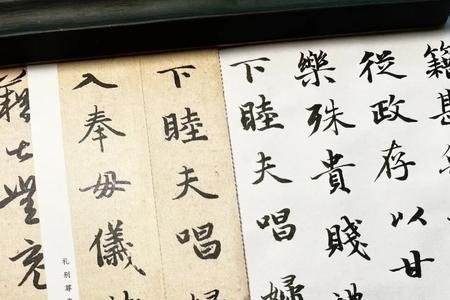 籍甚
從政存以甘
樂殊貴賤禮
下睦夫唱婦
下睦夫唱
入奉母儀
礼别尊
籍甚無竟